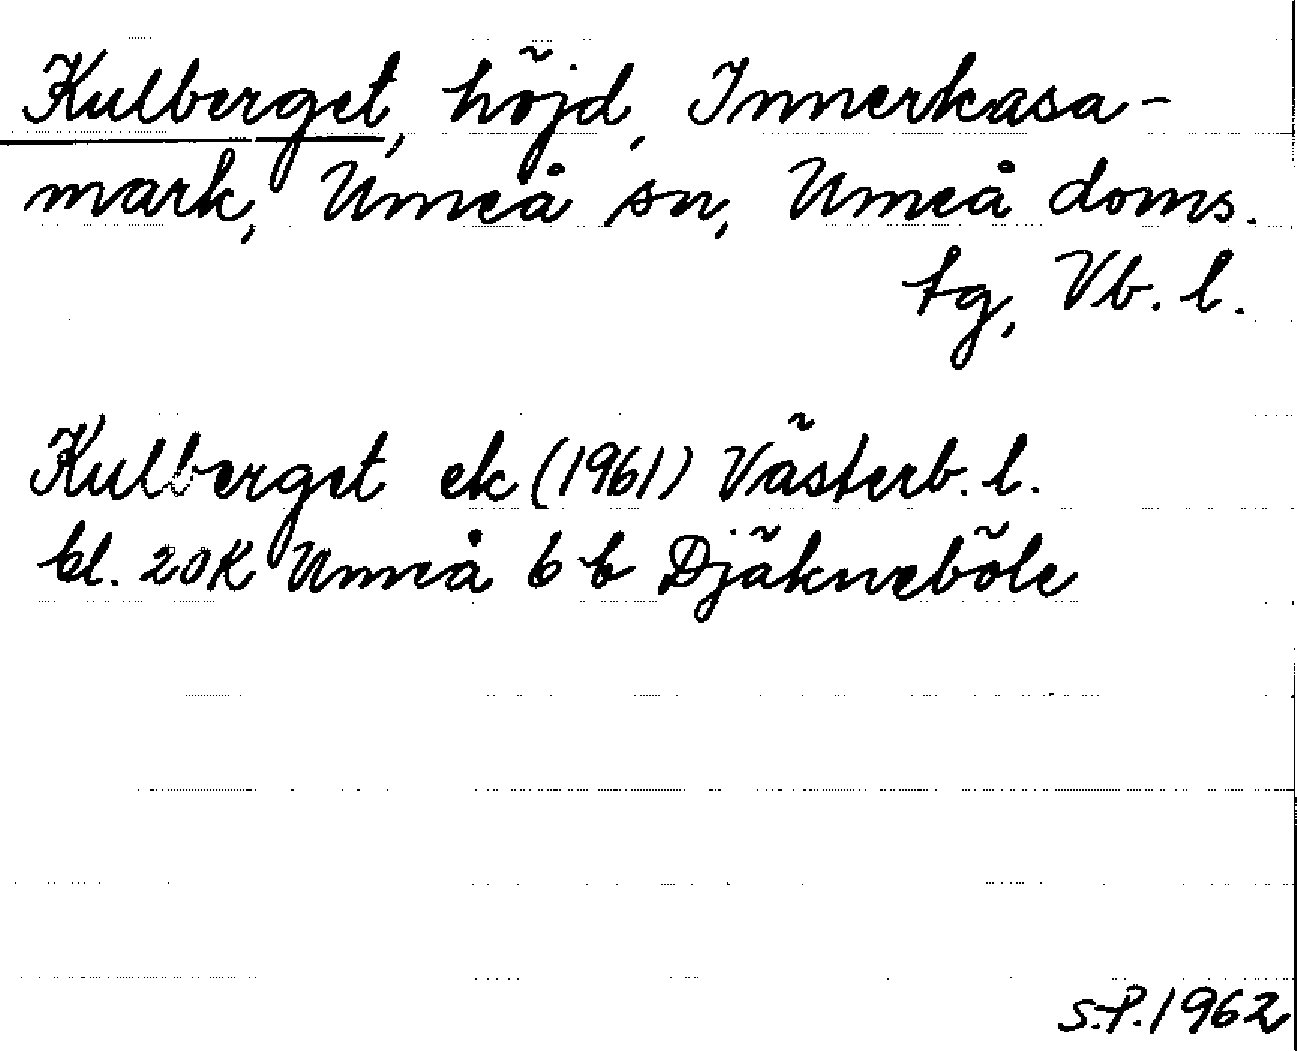 Kulberget, höjd, Innerkasa-
mark, Umeå sn, Umeå doms.
tg, Vb. l.
Kulberget ek (1961) Västerb. l.
bl. 20K Umeå 6 b Djäkneböle
S.P. 1962